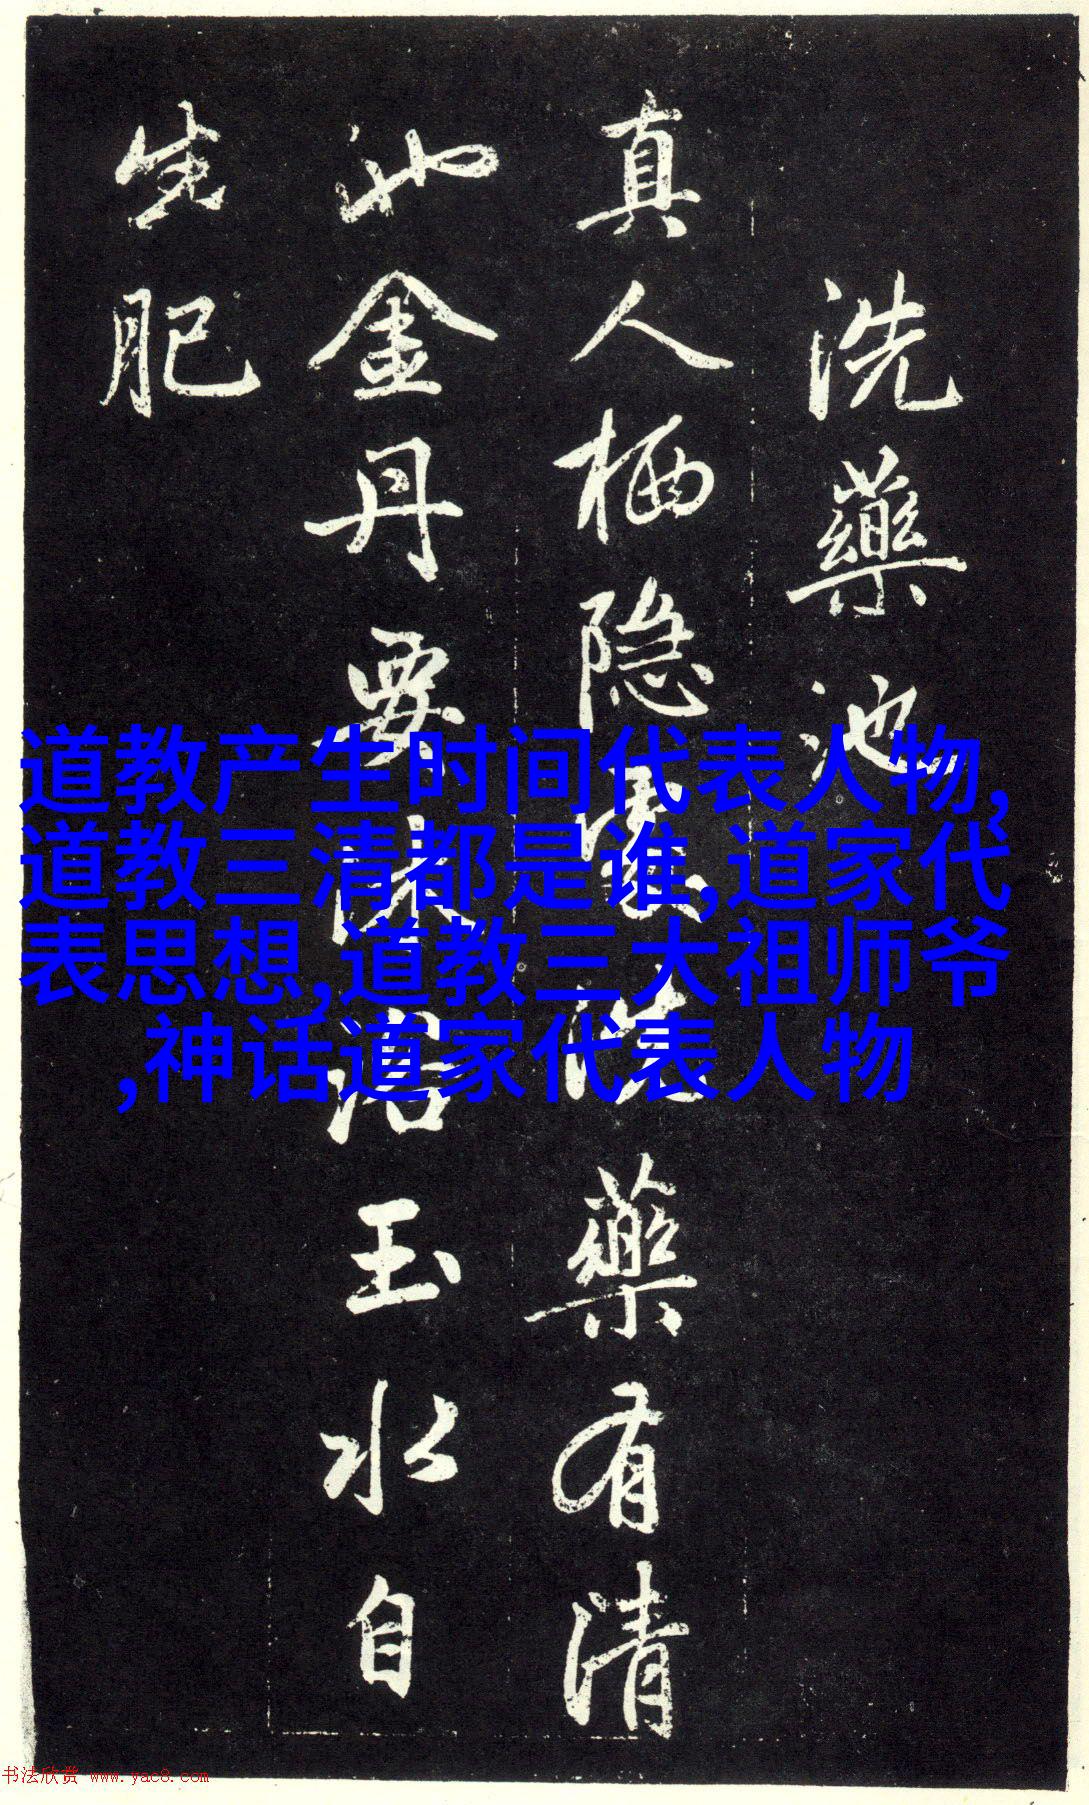 洗藥池
真人栖隐處洗藥有清
池金丹要沐浴玉水自
生肥
道教产生时间代表人物,
道教三清都是谁,道家代
表思想,道教三大祖师爷
,神话道家代表人物
书法欣赏 www.yac8.com